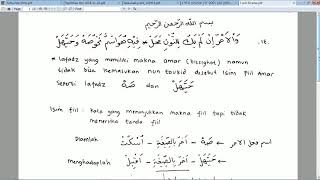 بسم الله الرحمن الرحيم
١٤. والأمر إن لم يك للنون محل * فيه هو اسم نحو صه وحيهل
* Lafadz yang memiliki makna amar (bisshighot) namun
tidak bisa kemasukan nun taukid disebut isim fiil amar
seperti lafadz حَيَّهَلْ dan صَهْ
Isim fiil : kata yang menunjukkan makna fiil tapi tidak
menerima tanda fiil
اسم فعل الأمر ← صَهْ - أمر بالصيغة - اُسْكُتْ Diamlah
← حَيَّهَلْ - أمر بالصيغة - أَقْبِلْ menghadaplah